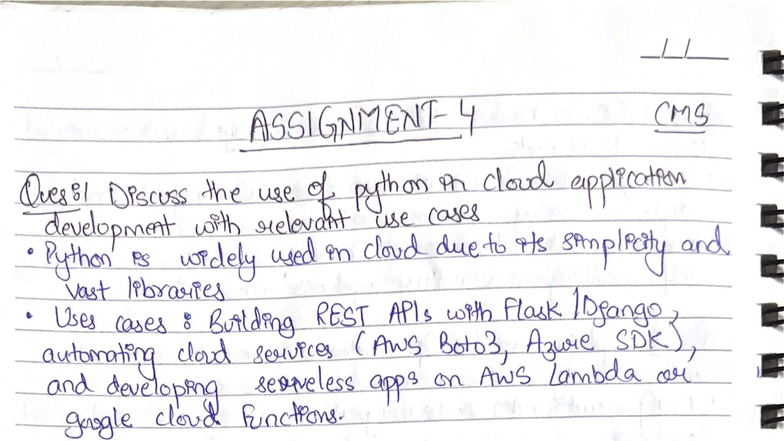 ASSIGNMENT-4 CMS
Ques:1 Discuss the use of python in cloud application
development with relevant use cases
• Python is widely used in cloud due to its simplicity and
vast libraries
• Uses cases : Building REST APIs with Flask / Django,
automating cloud services (AWS Boto3, Azure SDK),
and developing serveless apps on AWS Lambda or
google cloud Functions.